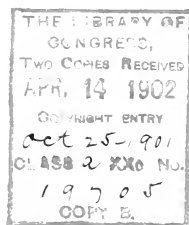 THE LIBRARY OF
CONGRESS,
TWO COPIES RECEIVED
APR. 14 1902
COPYRIGHT ENTRY
Oct 25-1901
CLASS a XXc NO.
19705
COPY B.